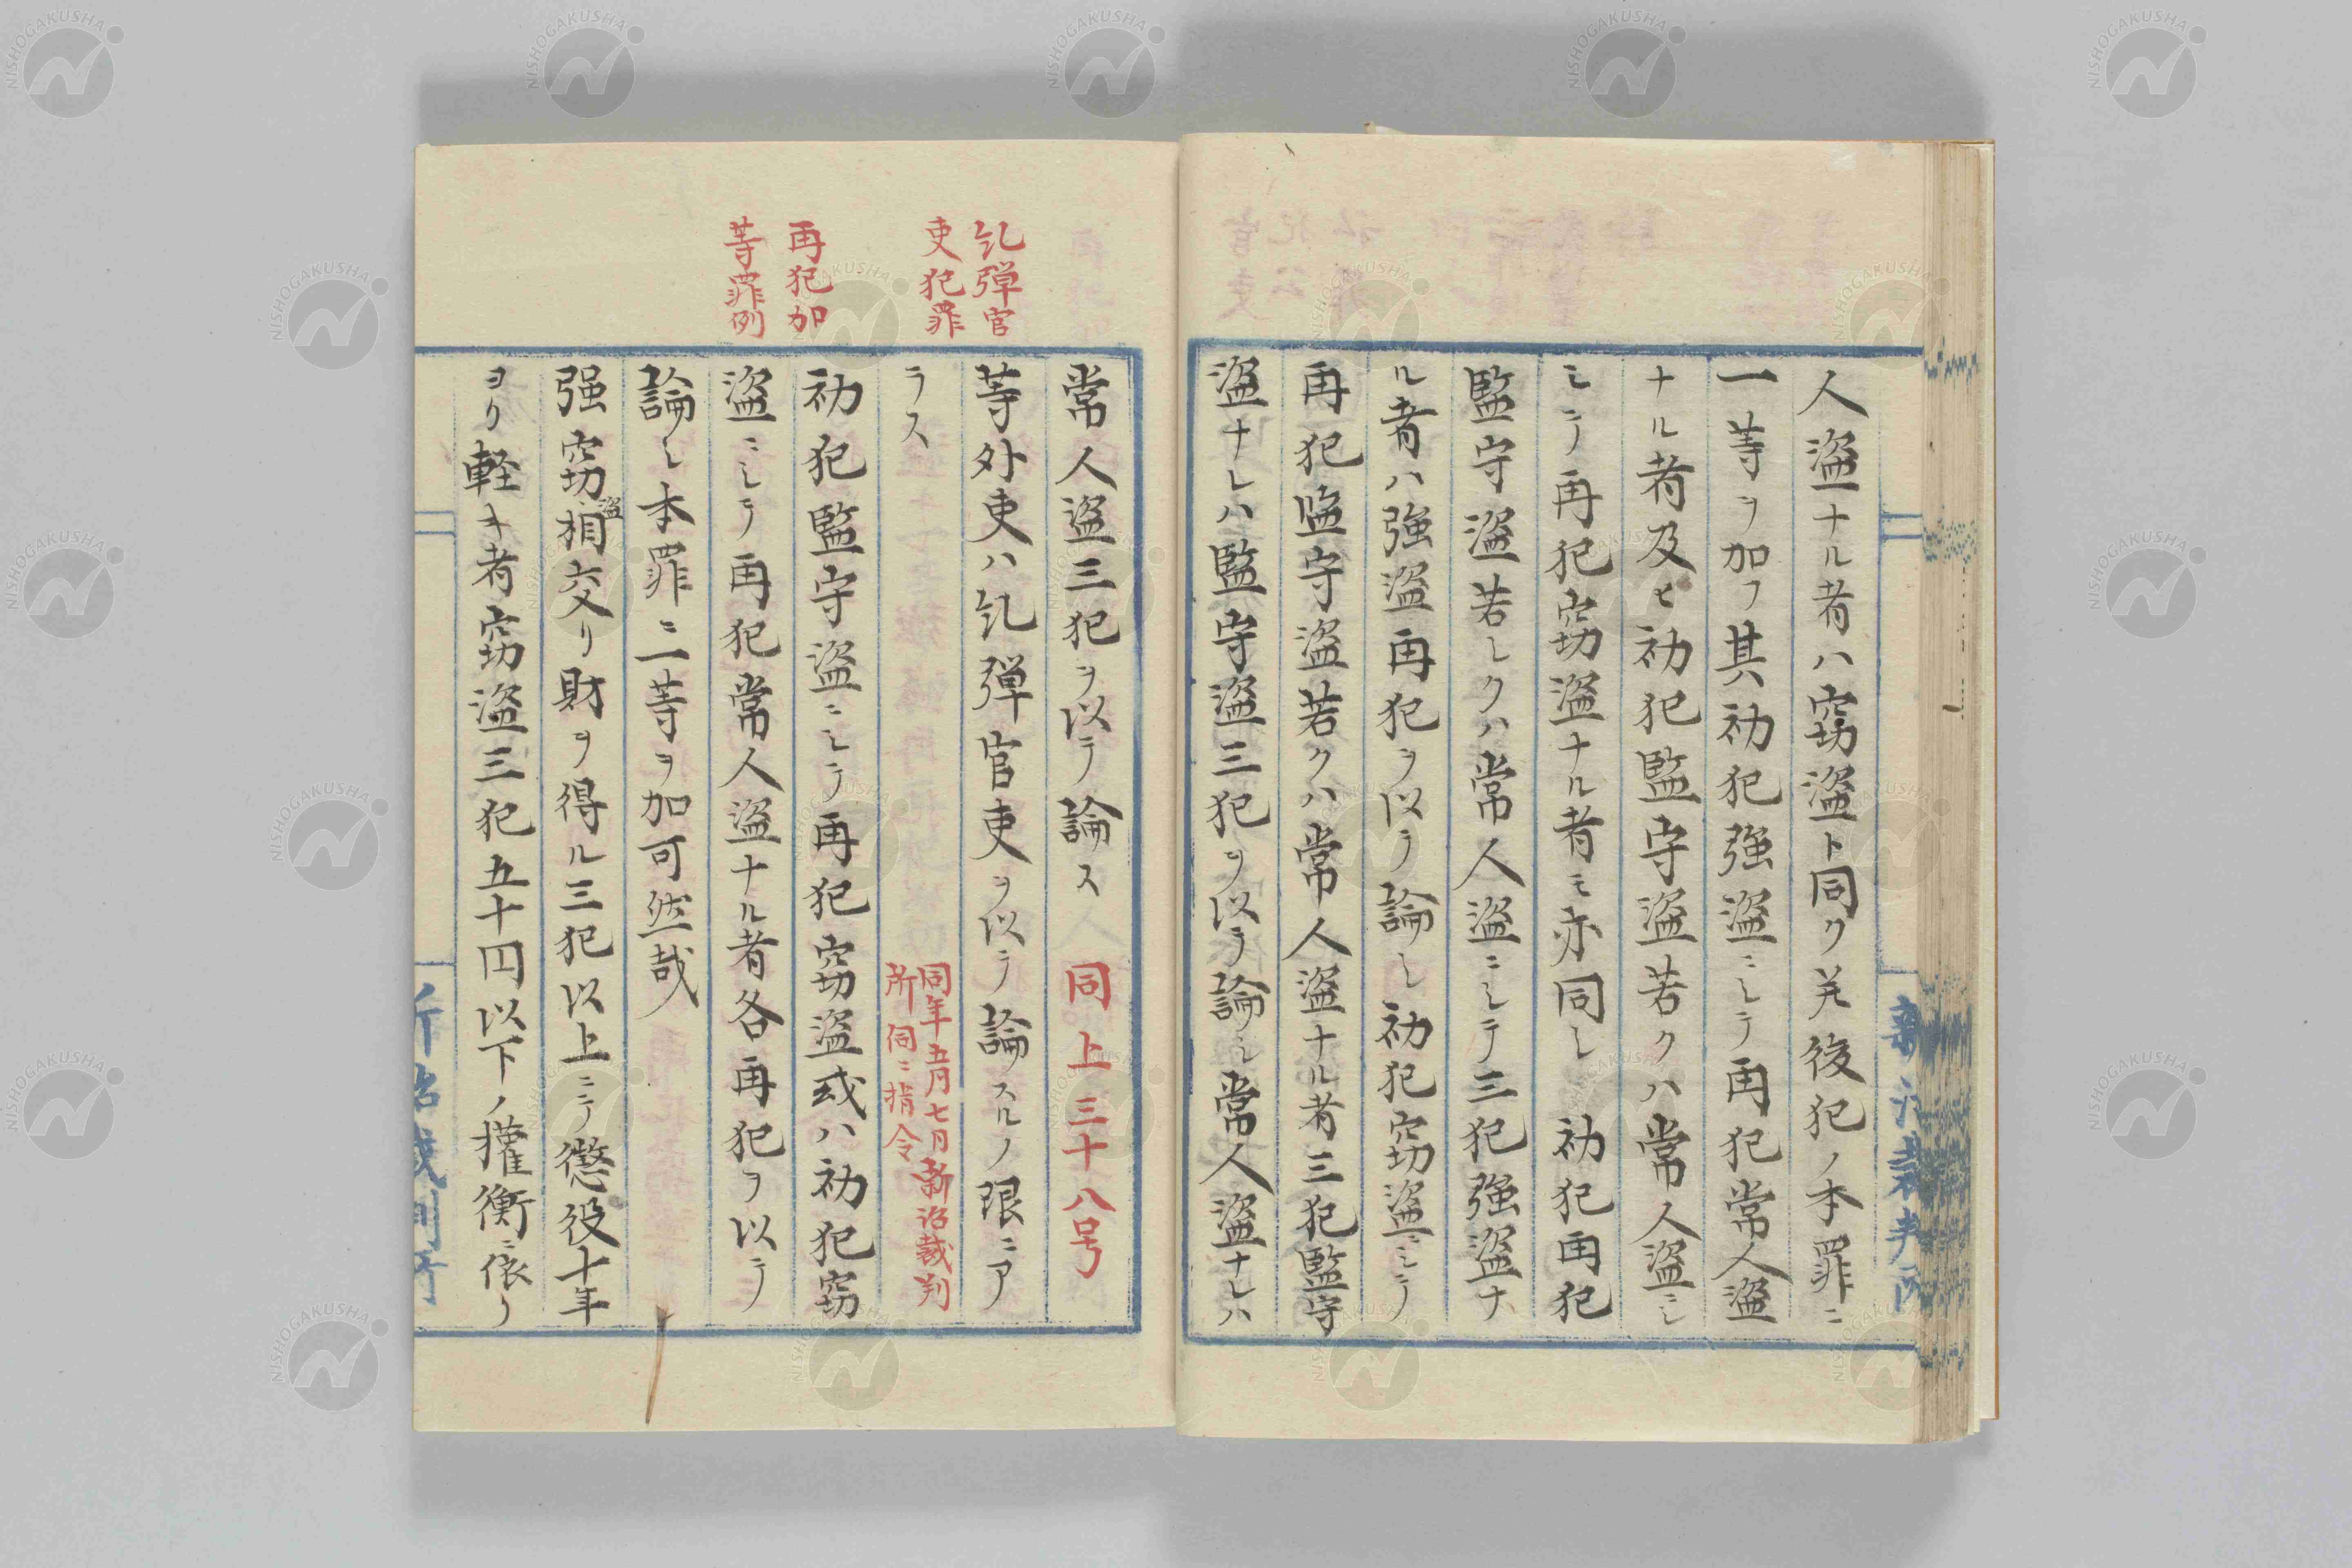 人盗ナル者ハ窃盗ト同ク先後犯ノ本罪ニ
一等ヲ加フ其初犯強盗ニシテ再犯常人盗
ナル者及ヒ初犯監守盗若クハ常人盗ニシ
ミテ再犯窃盗ナル者モ亦同シ 初犯再犯
監守盗若シクハ常人盗ニシテ三犯強盗ナ
ル者ハ強盗再犯ヲ以テ論シ初犯窃盗ニシテ
再犯監守盗若クハ常人盗ナル者三犯監守
盗ナレハ監守盗三犯ヲ以テ論シ常人盗ナレハ
新治裁判所
常人盗三犯ヲ以テ論ス 同上三十八号
糺弾官
吏犯罪
等外吏ハ糺弾官吏ヲ以テ論スルノ限ニア
ラス
同年五月七月新治裁判
所伺ニ指令
再犯加
等罪例
初犯監守盗ニシテ再犯窃盗或ハ初犯窃
盗ニシテ再犯常人盗ナル者各再犯ヲ以テ
論シ本罪ニ二等ヲ加可然哉
强窃盗相交リ財ヲ得ル三犯以上ニテ懲役十年
ヨリ軽キ者窃盗三犯五十円以下ノ権衡ニ依リ
新治裁判所
NISHOGAKUSHA